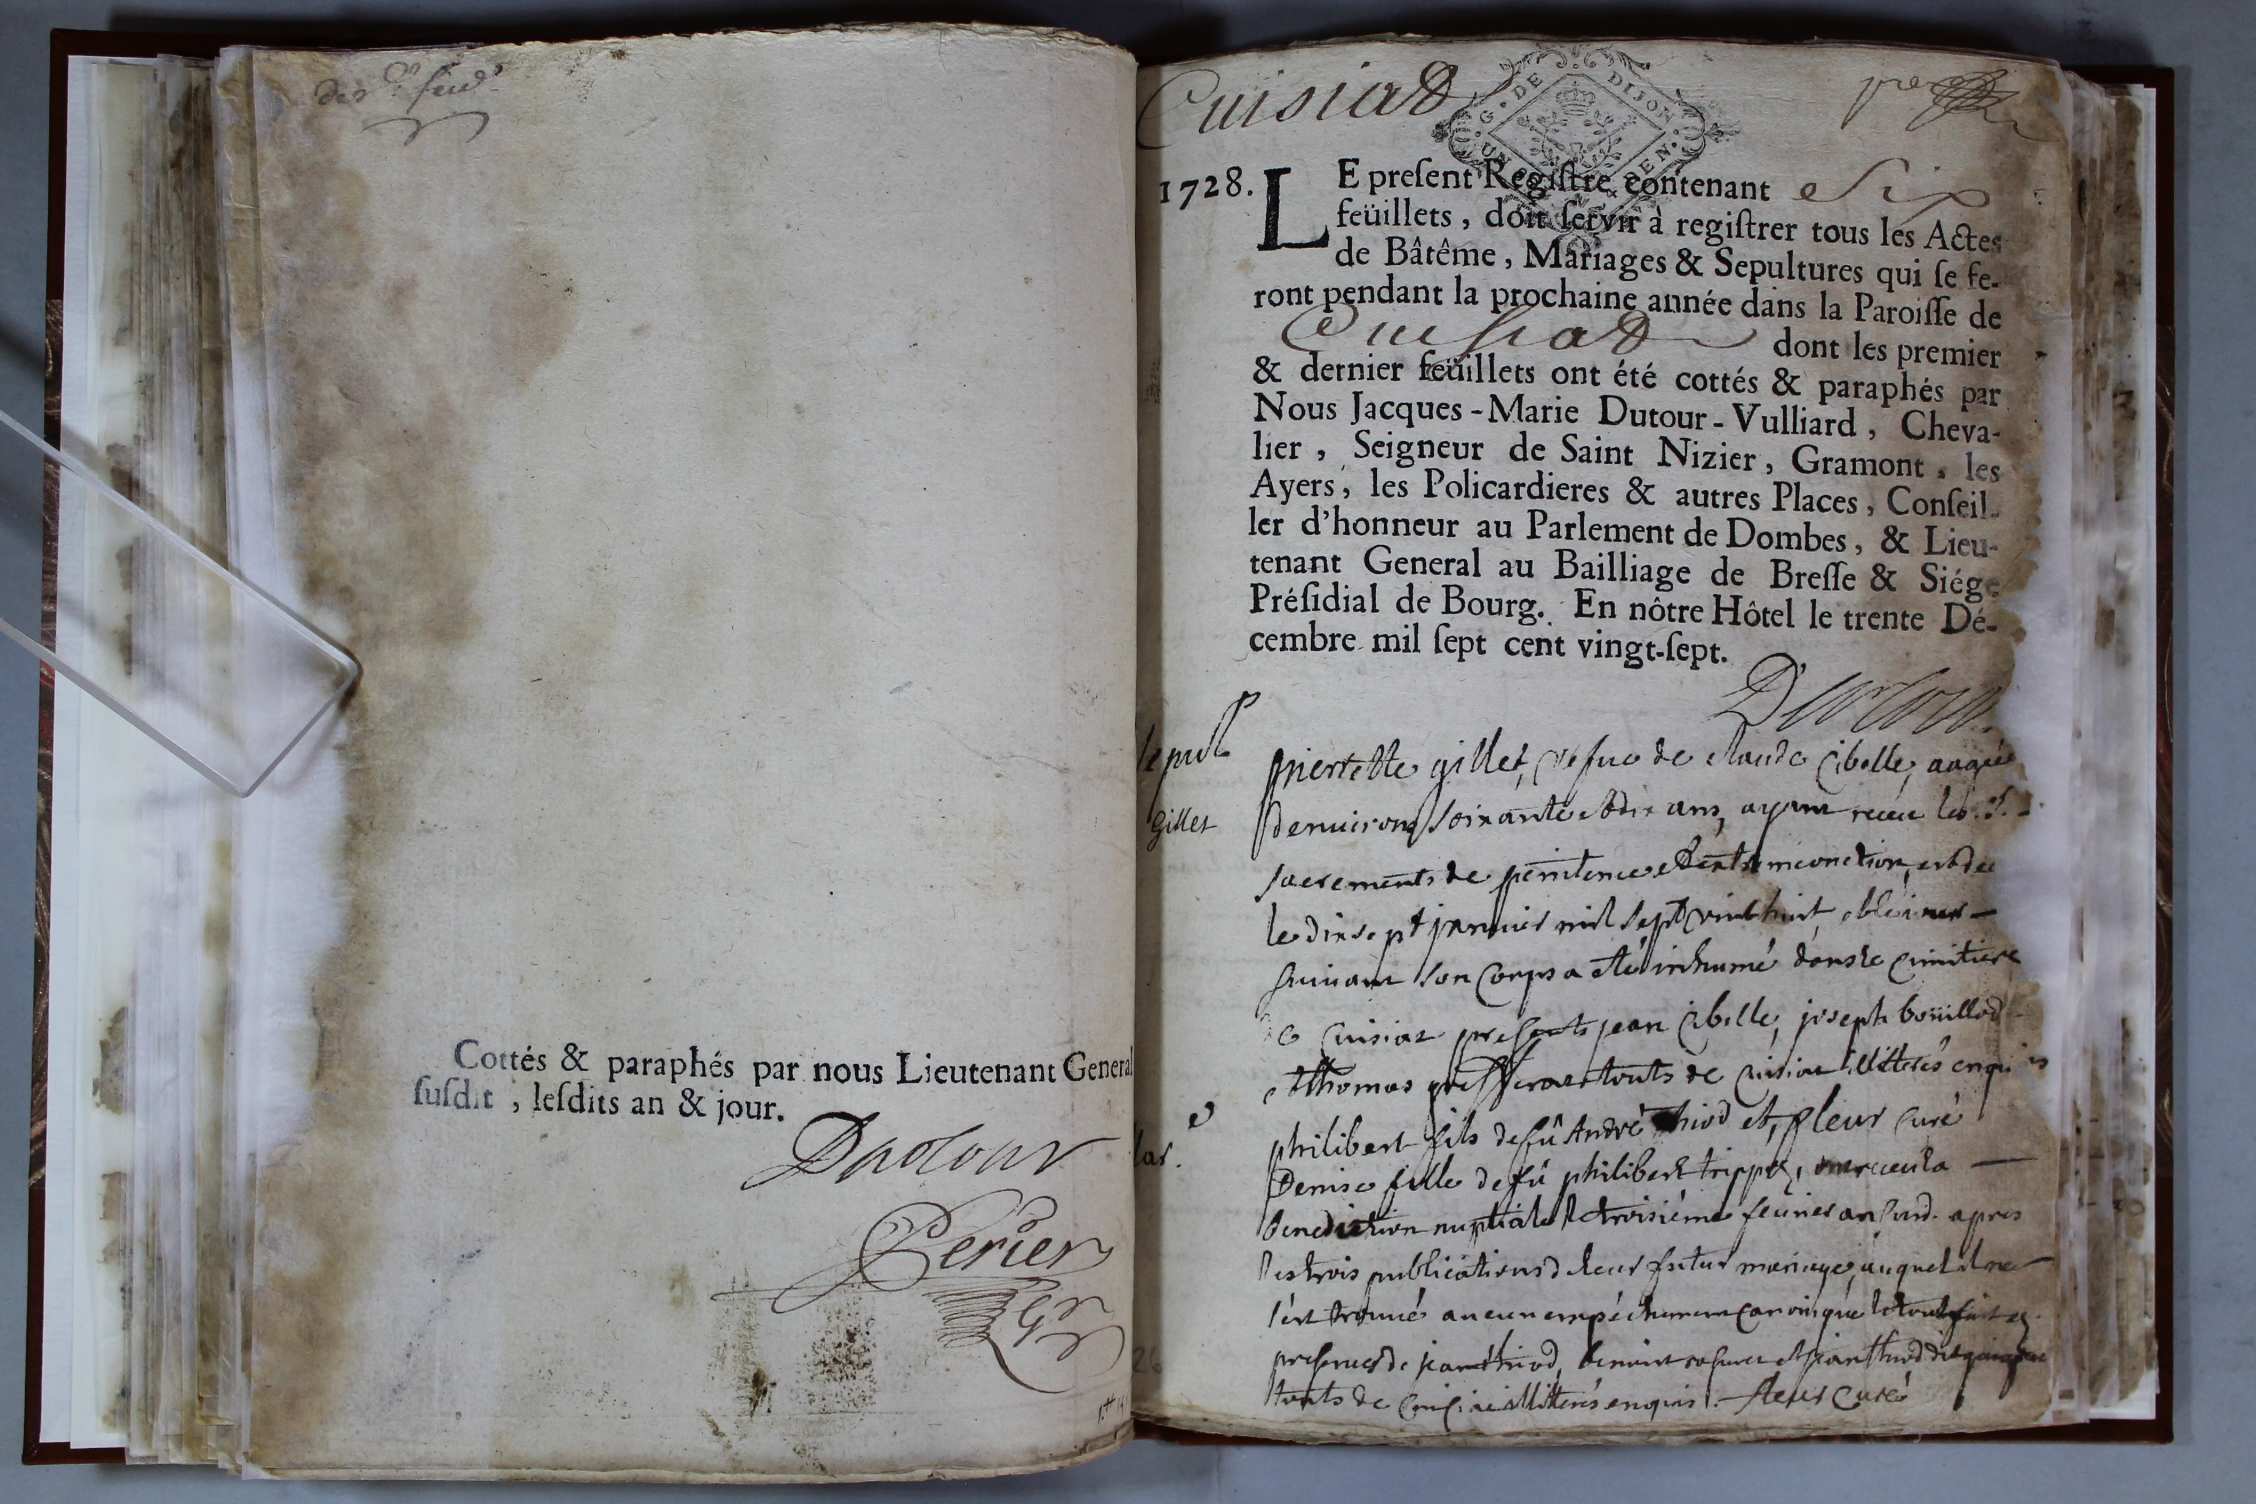 Cottés & paraphés par nous Lieutenant General
susdit, lesdits an & jour.
Dutour
Perier
Gr
Cuisiad
G. DE DIJON
UN EN
1728.
LE present Registre contenant Six
feüillets, doit servir à registrer tous les Actes
de Bâtême, Mariages & Sepultures qui se fe-
ront pendant la prochaine année dans la Paroisse de
Cuisiad dont les premier
& dernier feüillets ont été cottés & paraphés par
Nous Jacques-Marie Dutour-Vulliard, Cheva-
lier, Seigneur de Saint Nizier, Gramont, les
Ayers, les Policardieres & autres Places, Conseil-
ler d'honneur au Parlement de Dombes, & Lieu-
tenant General au Bailliage de Bresse & Siége
Présidial de Bourg. En nôtre Hôtel le trente Dé-
cembre mil sept cent vingt-sept.
Dutour
sepult
gillet
pierrette gillet, vefue de claude Cibelle, aagée
denuiron soixante et dix ans, ayant receu les st.
sacrements de penitence et extreme onction, est dec
le dix sept januier mil sept vint huit, et le iour
suiuant son corps a été inhumé dans le cimitiere
de Cuisiat presents jean Cibelle, joseph boüillod
et thomas touts de cuisiat illitterés enquis
philibert fils de fû André thiod et, fleur curé
Denise fille de fû philibert trippoz, ont receu la
benediction nuptiale le troisième feurier an susd. apres
les trois publications de leur futur mariage, auquel il ne
s'est trouué aucun empéchement canonique le tout fait en
presences de jean thiod, benoint et jean thiod dit
touts de Cuisiat illitterés enquis. fleur curé